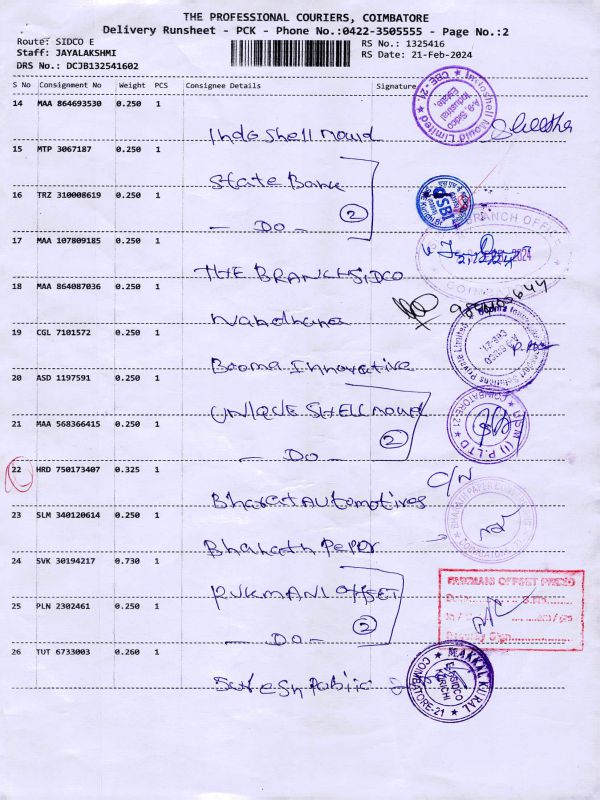 THE PROFESSIONAL COURIERS, COIMBATORE
Delivery Runsheet - PCK - Phone No.:0422-3505555 - Page No.:2
Route: SIDCO E
Staff: JAYALAKSHMI
DRS No.: DCJB132541602
RS No.: 1325416
RS Date: 21-Feb-2024
S No Consignment No Weight PCS Consignee Details Signature
14 MAA 864693530 0.250 1 Indo Shell Mould
15 MTP 3067187 0.250 1 State Bank
16 TRZ 310008619 0.250 1 - DO - 2
17 MAA 107809185 0.250 1 THE BRANCH SIDCO
18 MAA 864087036 0.250 1
19 CGL 7101572 0.250 1 Booma Innovative
20 ASD 1197591 0.250 1 UNIQUE SHELL Mould
21 MAA 568366415 0.250 1 - DO - 2
22 HRD 750173407 0.325 1 Bharat Automotives C/N
23 SLM 340120614 0.250 1 Bharath Paper
24 SVK 30194217 0.730 1 RUKMANI OFFSET
25 PLN 2302461 0.250 1 - DO - 2
26 TUT 6733003 0.260 1 Suresh Public
Indoshell Mould Limited
A-9, Sidco
Industrial
Estate,
CBE - 21.
SBI
BRANCH OFFICE
Solutions Private Limited
COIMBATORE-21
(I) P.LTD
COIMBATORE
RUKMANI OFFSET PRESS
MAKKAL KURAL
SIDCO
KURICHI
COIMBATORE-21